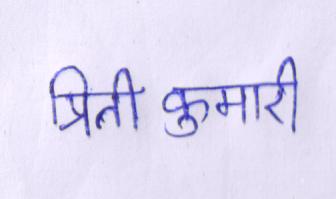 प्रिती कुमारी